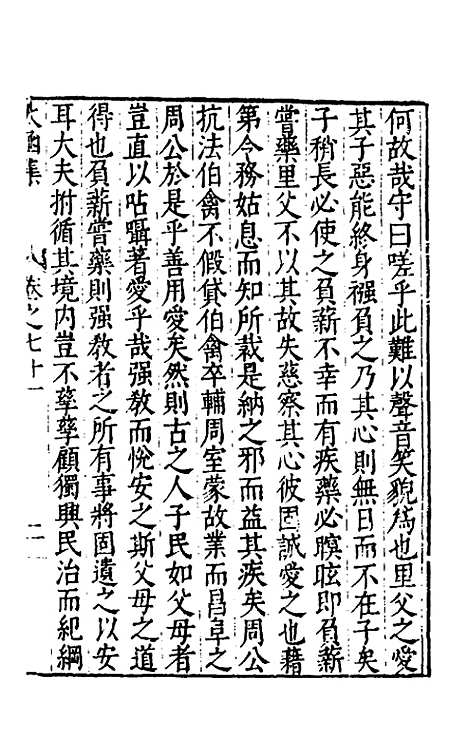 何故哉守曰嗟乎此難以聲音笑貌爲也里父之愛
其子惡能終身襁負之乃其心則無日而不在子矣
子稍長必使之負薪不幸而有疾藥必瞑眩即負薪
嘗藥里父不以其故失慈察其心彼固誠愛之也藉
第令務姑息而知所裁是納之邪而益其疾矣周公
抗法伯禽不假貸伯禽卒輔周室蒙故業而昌阜之
周公於是乎善用愛矣然則古之人子民如父母者
豈直以呫囁著愛乎哉强教而悅安之斯父母之道
得也負薪嘗藥則强敎者之所有事將固遺之以安
耳大夫拊循其境内豈不孳孳顧獨興民治而紀綱
太函集 卷之七十一 二